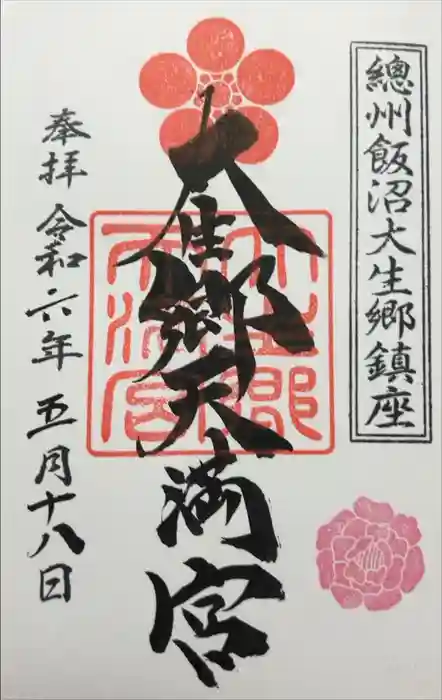 總州飯沼大生郷鎮座
大生郷天満宮
大生郷天満宮
奉拝 令和六年五月十八日